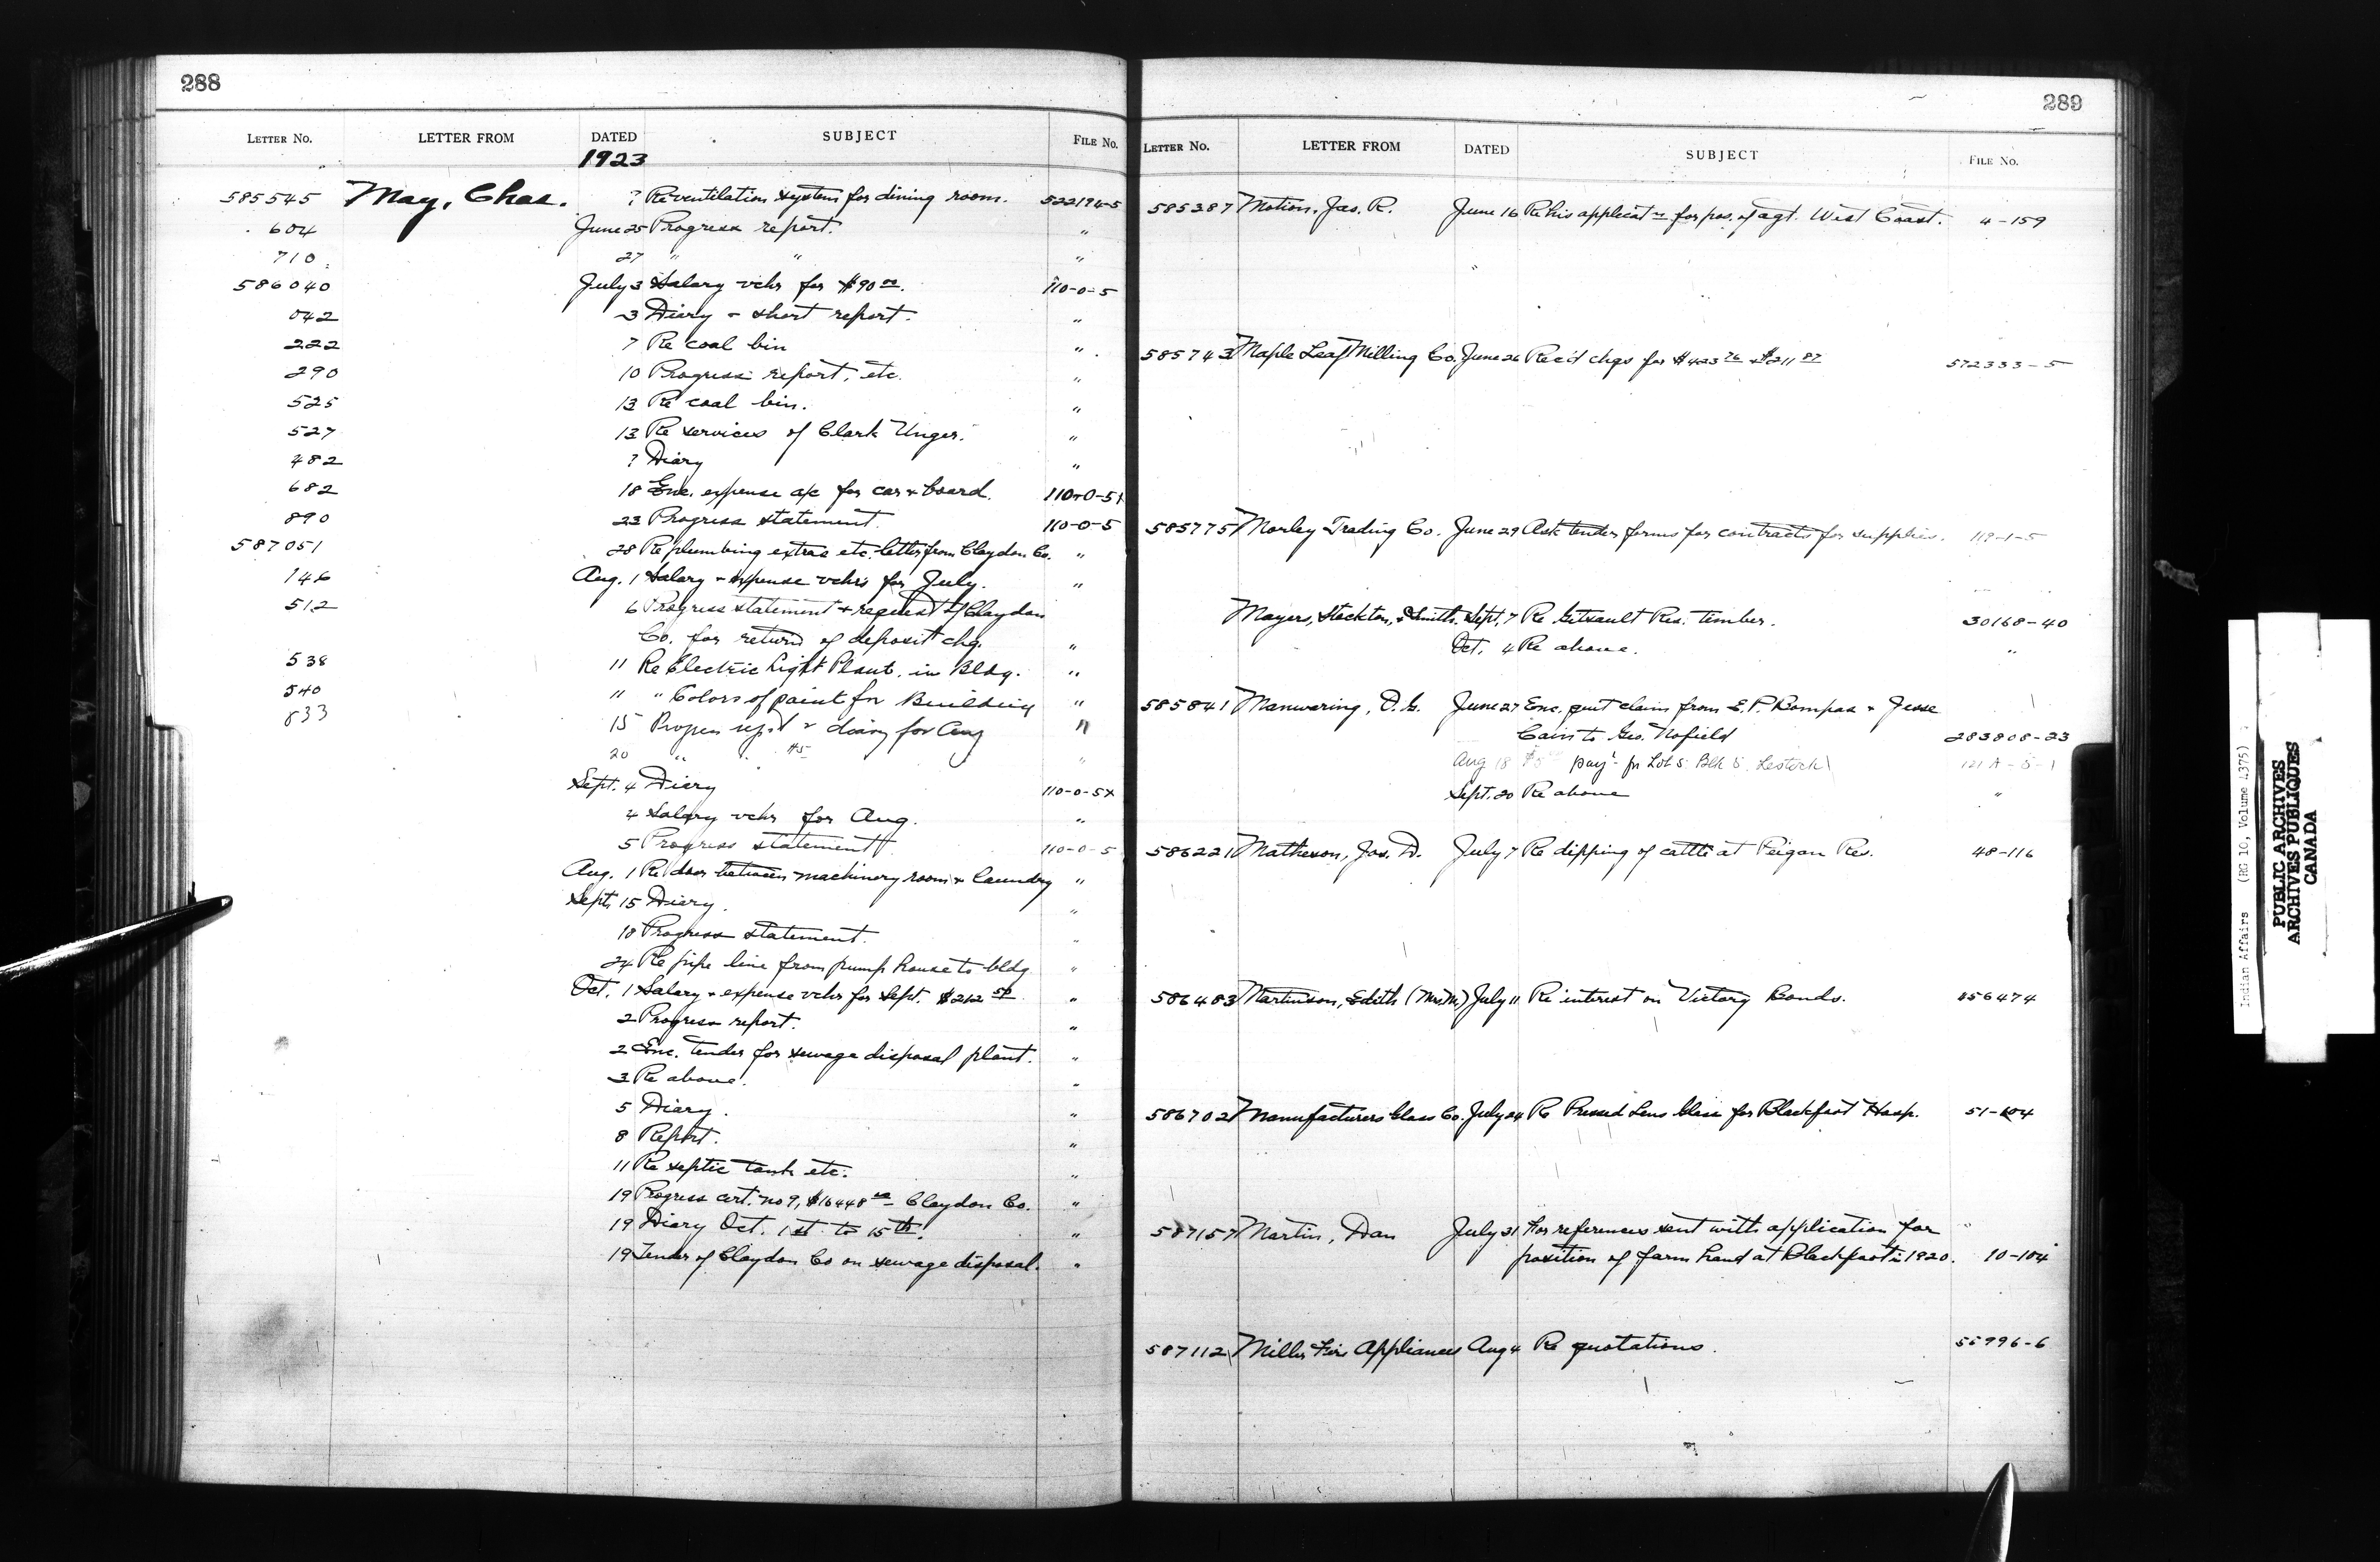 288
LETTER NO. LETTER FROM DATED SUBJECT FILE NO.
1923
585545 May, Chas. ? Re ventilation system for dining room. 522194-5
604 June 25 Progress report. "
710 27 " " "
586040 July 3 Salary vchr for $90 00. 110-0-5
042 3 Diary + short report. "
222 7 Re coal bin "
290 10 Progress report, etc. "
525 13 Re coal bin. "
527 13 Re services of Clark Unger. "
482 ? Diary "
682 18 Enc. expense a/c for car + board. 110-0-5x
890 23 Progress statement 110-0-5
587051 28 Re plumbing extras etc. letter from Claydon Co. "
146 Aug. 1 Salary + expense vchrs for July. "
512 6 Progress statement + request of Claydon
Co. for return of deposit chq. "
538 11 Re Electric Light Plant. in Bldg. "
540 11 " Colors of paint for Building "
833 15 Progress rept + diary for Aug "
20 " #5 "
Sept. 4 Diary 110-0-5x
4 Salary vchr for Aug. "
5 Progress statement 110-0-5
Aug. 1 Re door between machinery room + laundry "
Sept. 15 Diary. "
18 Progress statement. "
24 Re pipe line from pump house to bldg "
Oct. 1 Salary + expense vchr for Sept. $212 50 "
2 Progress report. "
2 Enc. tender for sewage disposal plant. "
3 Re above. "
5 Diary. "
8 Report. "
11 Re septic tank etc. "
19 Progress cert. no 9, $16448 Claydon Co. "
19 Diary Oct. 1st to 15th. "
19 Tender of Claydon Co on sewage disposal. "
289
LETTER NO. LETTER FROM DATED SUBJECT FILE NO.
585387 Motion, Jas. R. June 16 Re his applicatn for pos. of agt. West Coast. 4-159
585743 Maple Leaf Milling Co. June 26 Rec'd chqs for $423 76 + $211 87 572333-5
585775 Morley Trading Co. June 29 Ask tender forms for contracts for supplies. 119-1-5
Mayers, Stockton, & Smith. Sept. 7 Re Gitsault Res. timber. 30168-40
Oct. 4 Re above. "
585841 Manwaring, D.G. June 27 Enc. quit claim from E.P. Bompas + Jesse
Cairs to Geo. Nofield 283808-23
Aug 18 pay't for Lot 5 Blk 5 Lestock 121A-5-1
Sept. 20 Re above "
586221 Matheson, Jas. D. July 7 Re dipping of cattle at Peigan Res. 48-116
586483 Martinson, Edith (Mrs M.) July 11 Re interest on Victory Bonds. 456474
586702 Manufacturers Glass Co. July 24 Re Pressed Lens Glass for Blackfoot Hosp. 51-104
587157 Martin, Dan July 31 For references sent with application for
position of farm hand at Blackfoot in 1920. 10-104
587112 Miller Fire Appliances Aug 4 Re quotations. 55996-6
Indian Affairs (RG 10, Volume 4375)
PUBLIC ARCHIVES
ARCHIVES PUBLIQUES
CANADA